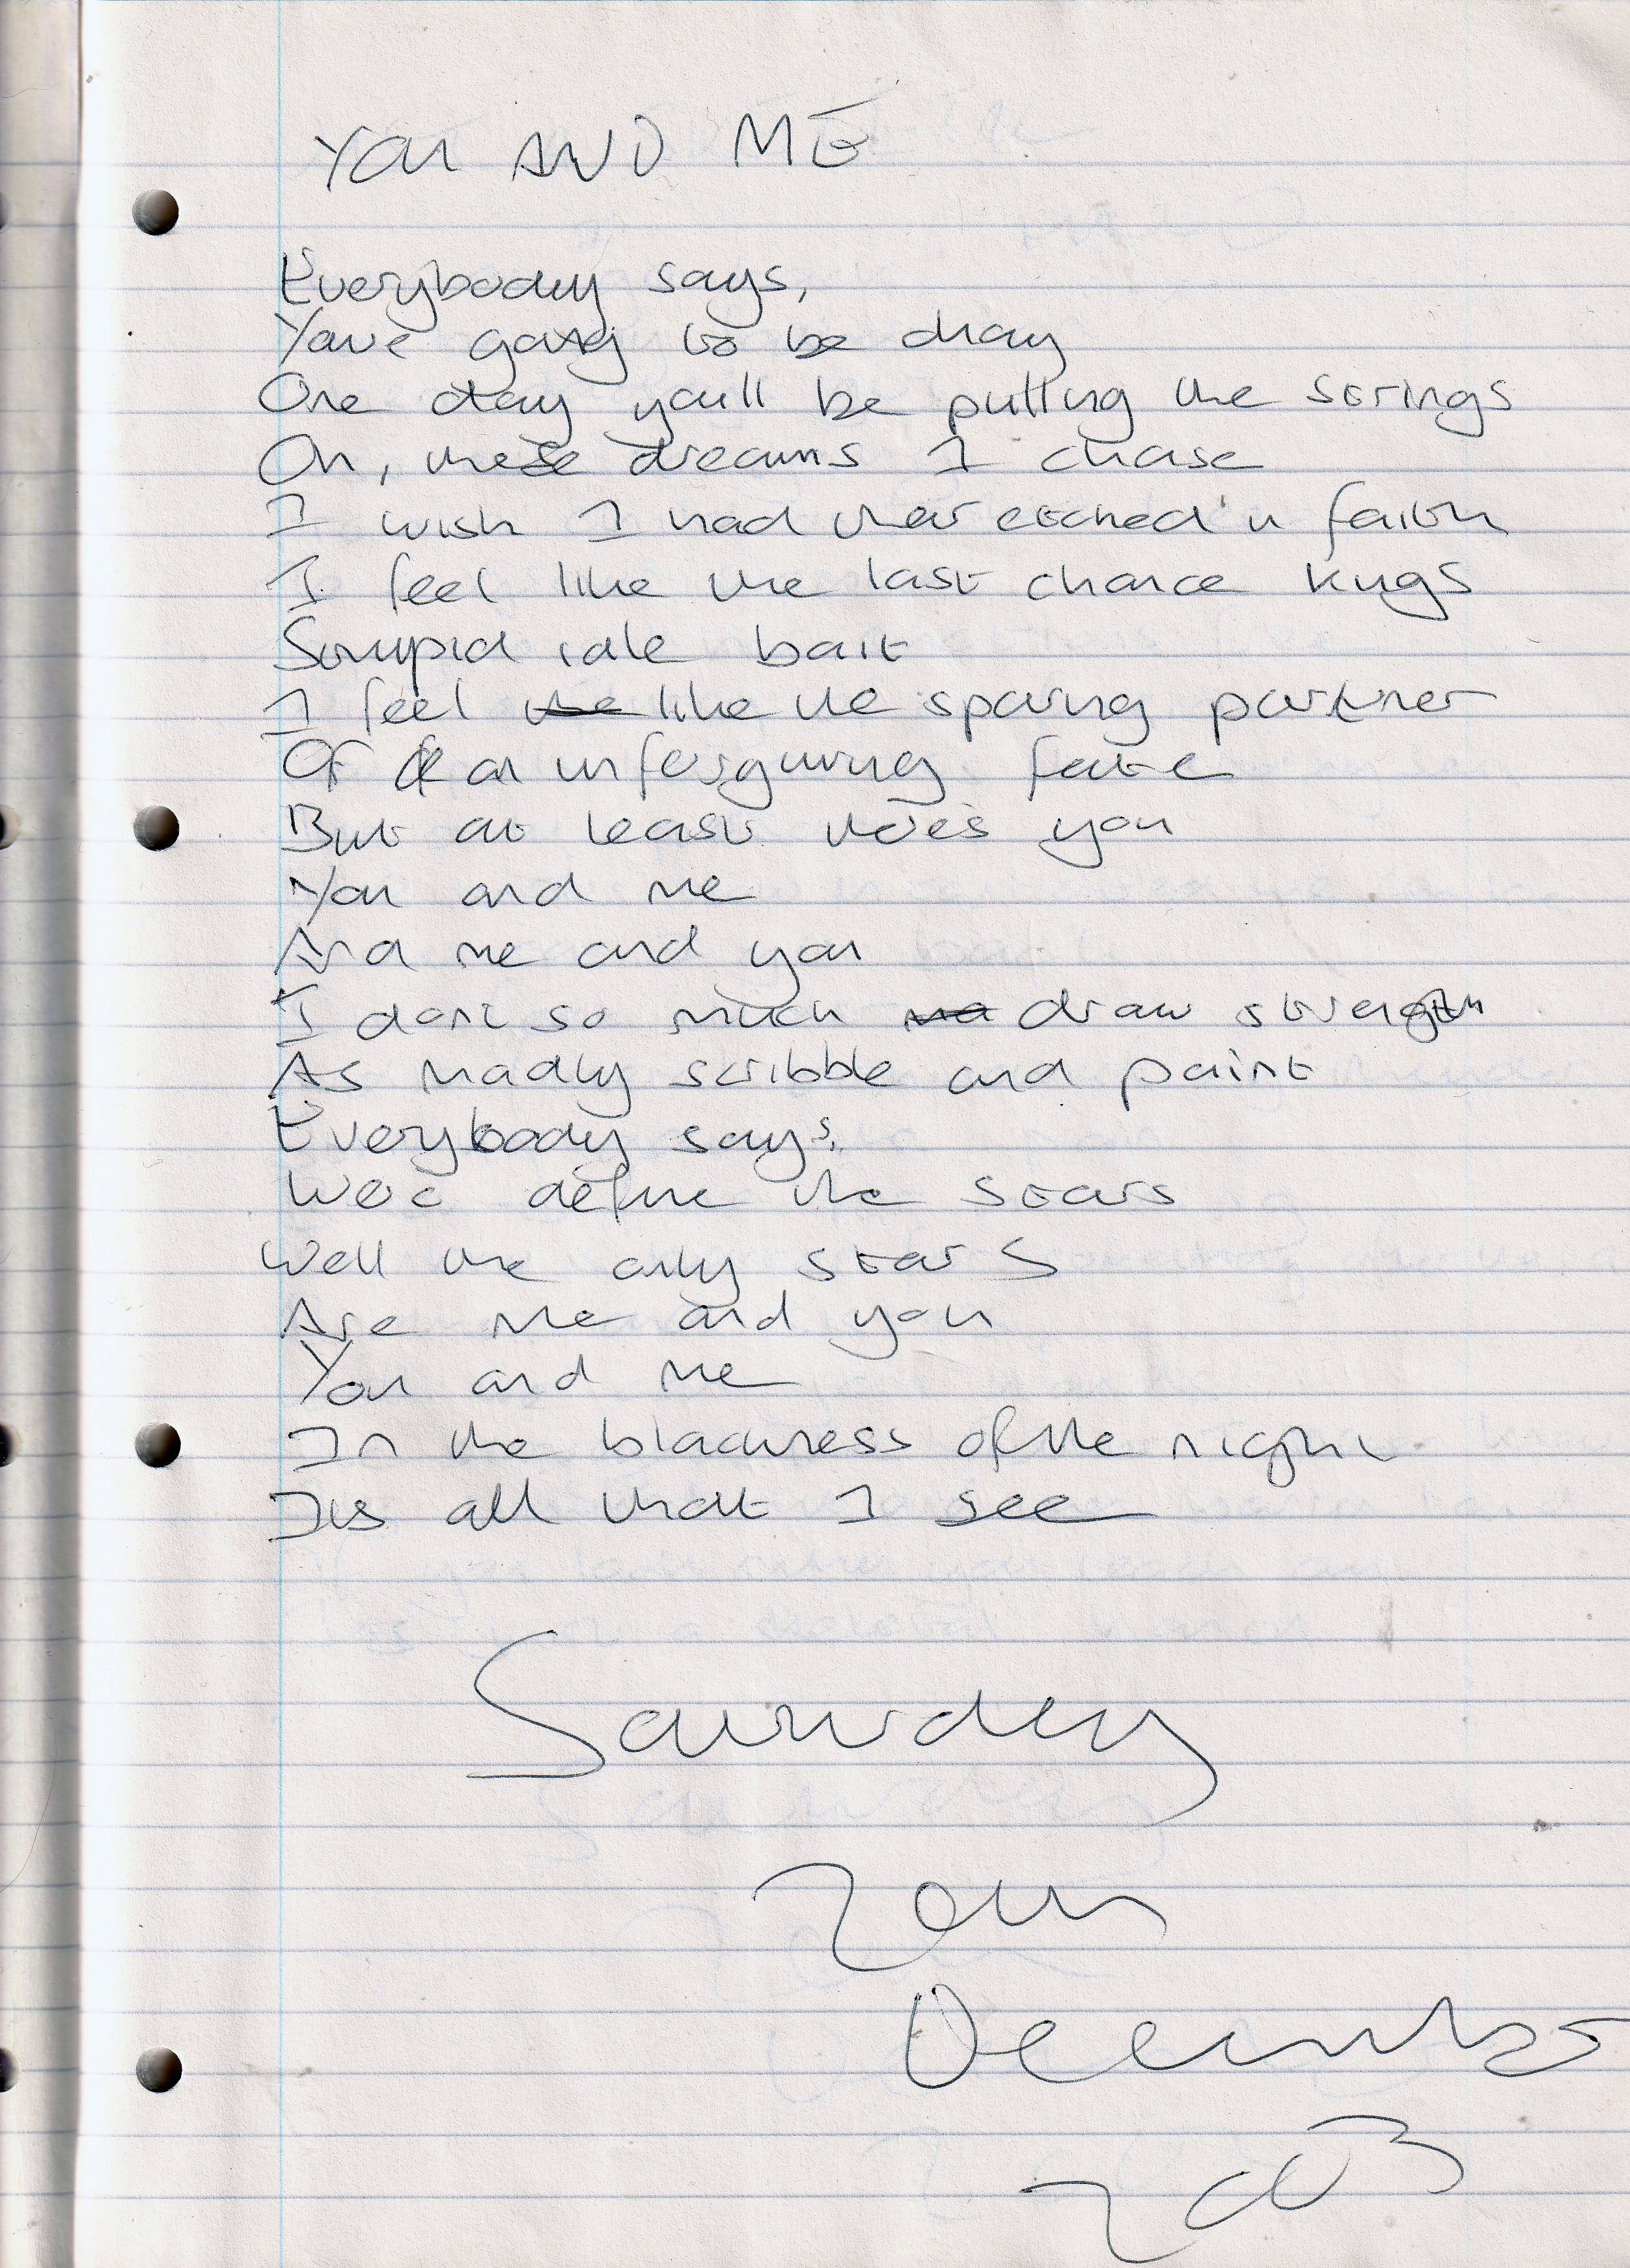 YOU AND ME
Everybody says,
Youre going to be okay
One day youll be pulling the strings
Oh, these dreams I chase
I wish I had their etched in faith
I feel like the last chance kings
Stupid idle bait
I feel the like the sparing partner
Of an unforgiving fate
But at least theres you
You and me
And me and you
I dont so much draw strength
As madly scribble and paint
Everybody says,
We define the stars
Well the only stars
Are me and you
You and me
In the blackness of the night
Its all that I see
Saturday
20th
December
2003